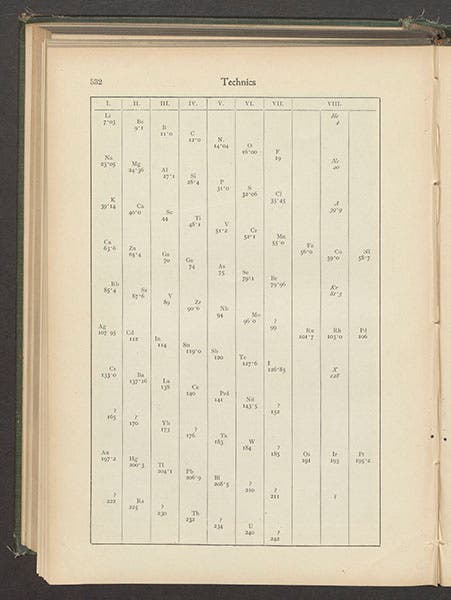 532
Technics
I. II. III. IV. V. VI. VII. VIII.
Li 7·03
Be 9·1
B 11·0
C 12·0
N. 14·04
O 16·00
F 19
He 4
Na 23·05
Mg 24·36
Al 27·1
Si 28·4
P 31·0
S 32·06
Cl 35·45
Ne 20
K 39·14
Ca 40·0
Sc 44
Ti 48·1
V 51·2
Cr 52·1
Mn 55·0
A 39·9
Fe 56·0
Co 59·0
Ni 58·7
Cu 63·6
Zn 65·4
Ga 70
Ge 74
As 75
Se 79·1
Br 79·96
Kr 81·5
Rb 85·4
Sr 87·6
Y 89
Zr 90·6
Nb 94
Mo 96·0
? 99
Ru 101·7
Rh 103·0
Pd 106
Ag 107·95
Cd 112
In 114
Sn 119·0
Sb 120
Te 127·6
I 126·85
X 128
Cs 133·0
Ba 137·26
La 138
Ce 140
Prd 141
Nd 143·5
? 152
? 165
? 170
Yb 173
? 176
Ta 183
W 184
? 185
Os 191
Ir 193
Pt 195·2
Au 197·2
Hg 200·3
Tl 204·1
Pb 206·9
Bi 208·5
? 210
? 211
? 222
Ra 225
? 230
Th 232
? 234
U 240
? 242
?